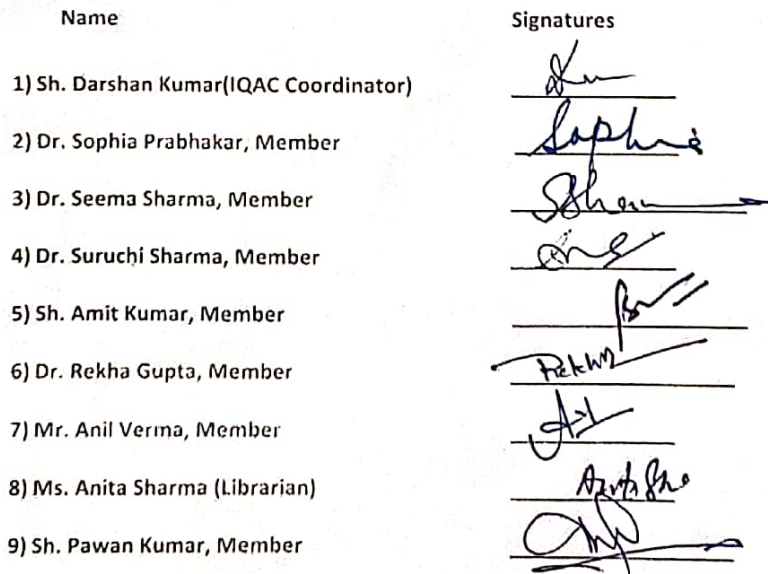 Name Signatures
1) Sh. Darshan Kumar(IQAC Coordinator)
2) Dr. Sophia Prabhakar, Member Sophia
3) Dr. Seema Sharma, Member
4) Dr. Suruchi Sharma, Member
5) Sh. Amit Kumar, Member
6) Dr. Rekha Gupta, Member Rekha
7) Mr. Anil Verma, Member
8) Ms. Anita Sharma (Librarian)
9) Sh. Pawan Kumar, Member